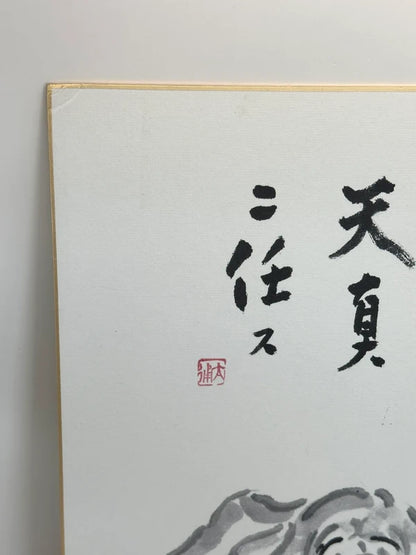 天真
ニ任ス